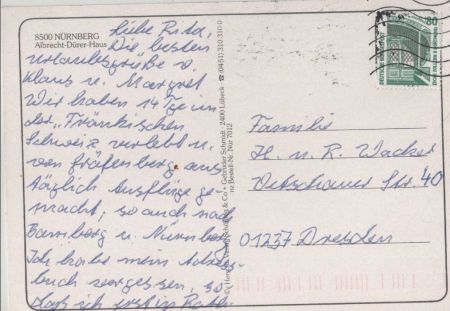 8500 NÜRNBERG
Albrecht-Dürer-Haus
Liebe Rita,
Die besten
Urlaubsgrüße v.
Klaus u. Margret
Wir haben 14 Tge in
der „Fränkischen
Schweiz verlebt u.
von Gräfenberg aus
täglich Ausflüge ge-
macht, so auch nach
Bamberg u. Nürnberg
Ich habe mein Adres
buch vergessen, so
daß ich erst in
Gebrüder Schmidt, 2400 Lübeck ☎ (0451) 310 310 0
Bestell-Nr. Nür 7012
80
Familie
H. u. R. Wacker
Str. 40
01237 Dresden